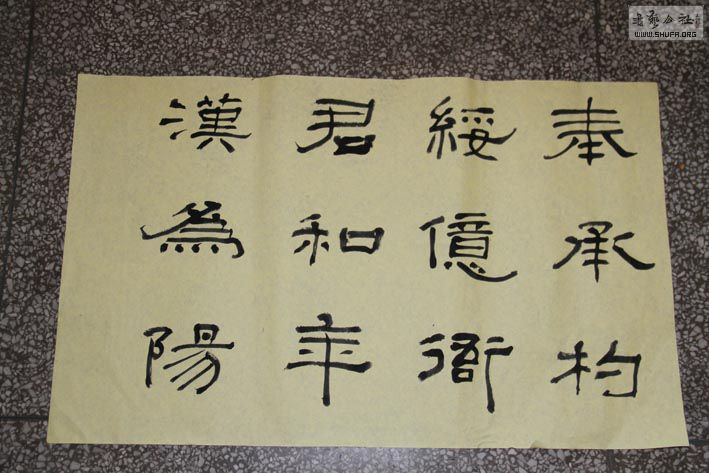 奉承杓
綏億衙
君和年
漢為陽
書藝公社
WWW.SHUFA.ORG